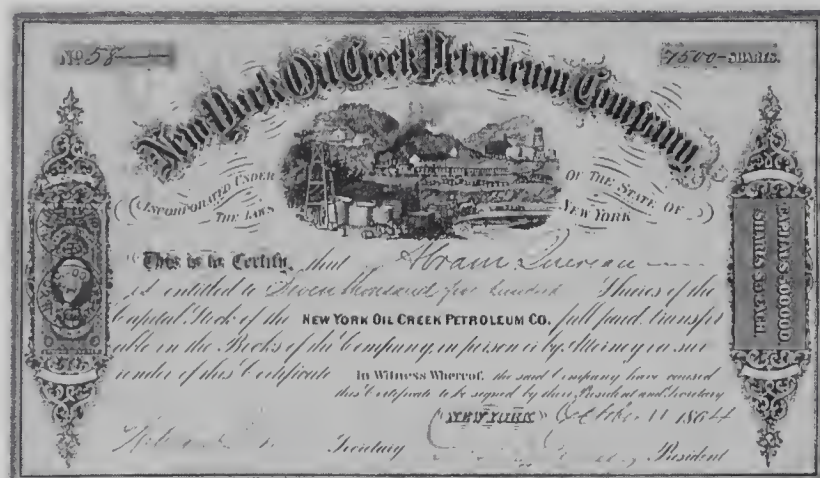 No 58
7500 SHARES.
New York Oil Creek Petroleum Company
INCORPORATED UNDER THE LAWS OF THE STATE OF NEW YORK
CAPITAL $500,000.
SHARES $5 EACH.
This is to Certify, that Abram
is entitled to Seven thousand five hundred Shares of the
Capital Stock of the NEW YORK OIL CREEK PETROLEUM CO. full paid, transfer
able in the Books of the Company, in person or by Attorney on sur
render of this Certificate In Witness Whereof, the said Company have caused
this Certificate to be signed by their President and Secretary
NEW YORK October 11 1864
Secretary President